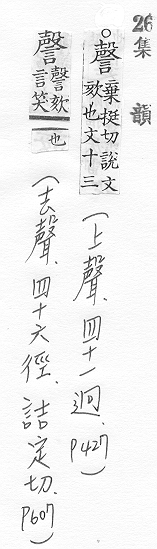 26集韻
○謦棄挺切說文
欬也文十三
(上聲.四十一迥.P427)
謦謦欬
言笑
也
(去聲.四十六徑.詰定切.P607)